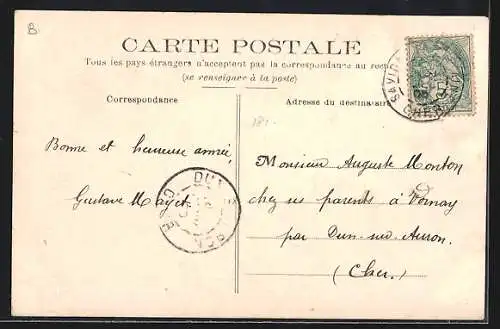 B
CARTE POSTALE
Tous les pays étrangers n'acceptent pas la correspondance au
(se renseigner à la poste)
Correspondance
Adresse du destinataire
Bonne et heureuse année,
Gustave Mayet
Monsieur Auguste Monton
chez ses parents à Vornay
par Dun-sur-Auron.
(Cher.)
CHER
DU